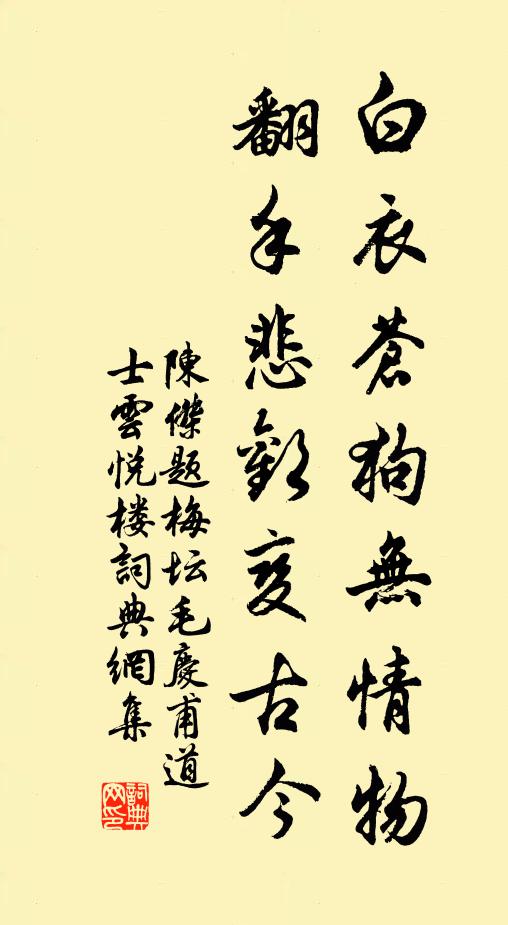 白衣蒼狗無情物
翻手悲歡变古今
陳傑题梅坛毛慶甫道
士雲悦楼詞典網集
詞典
网印